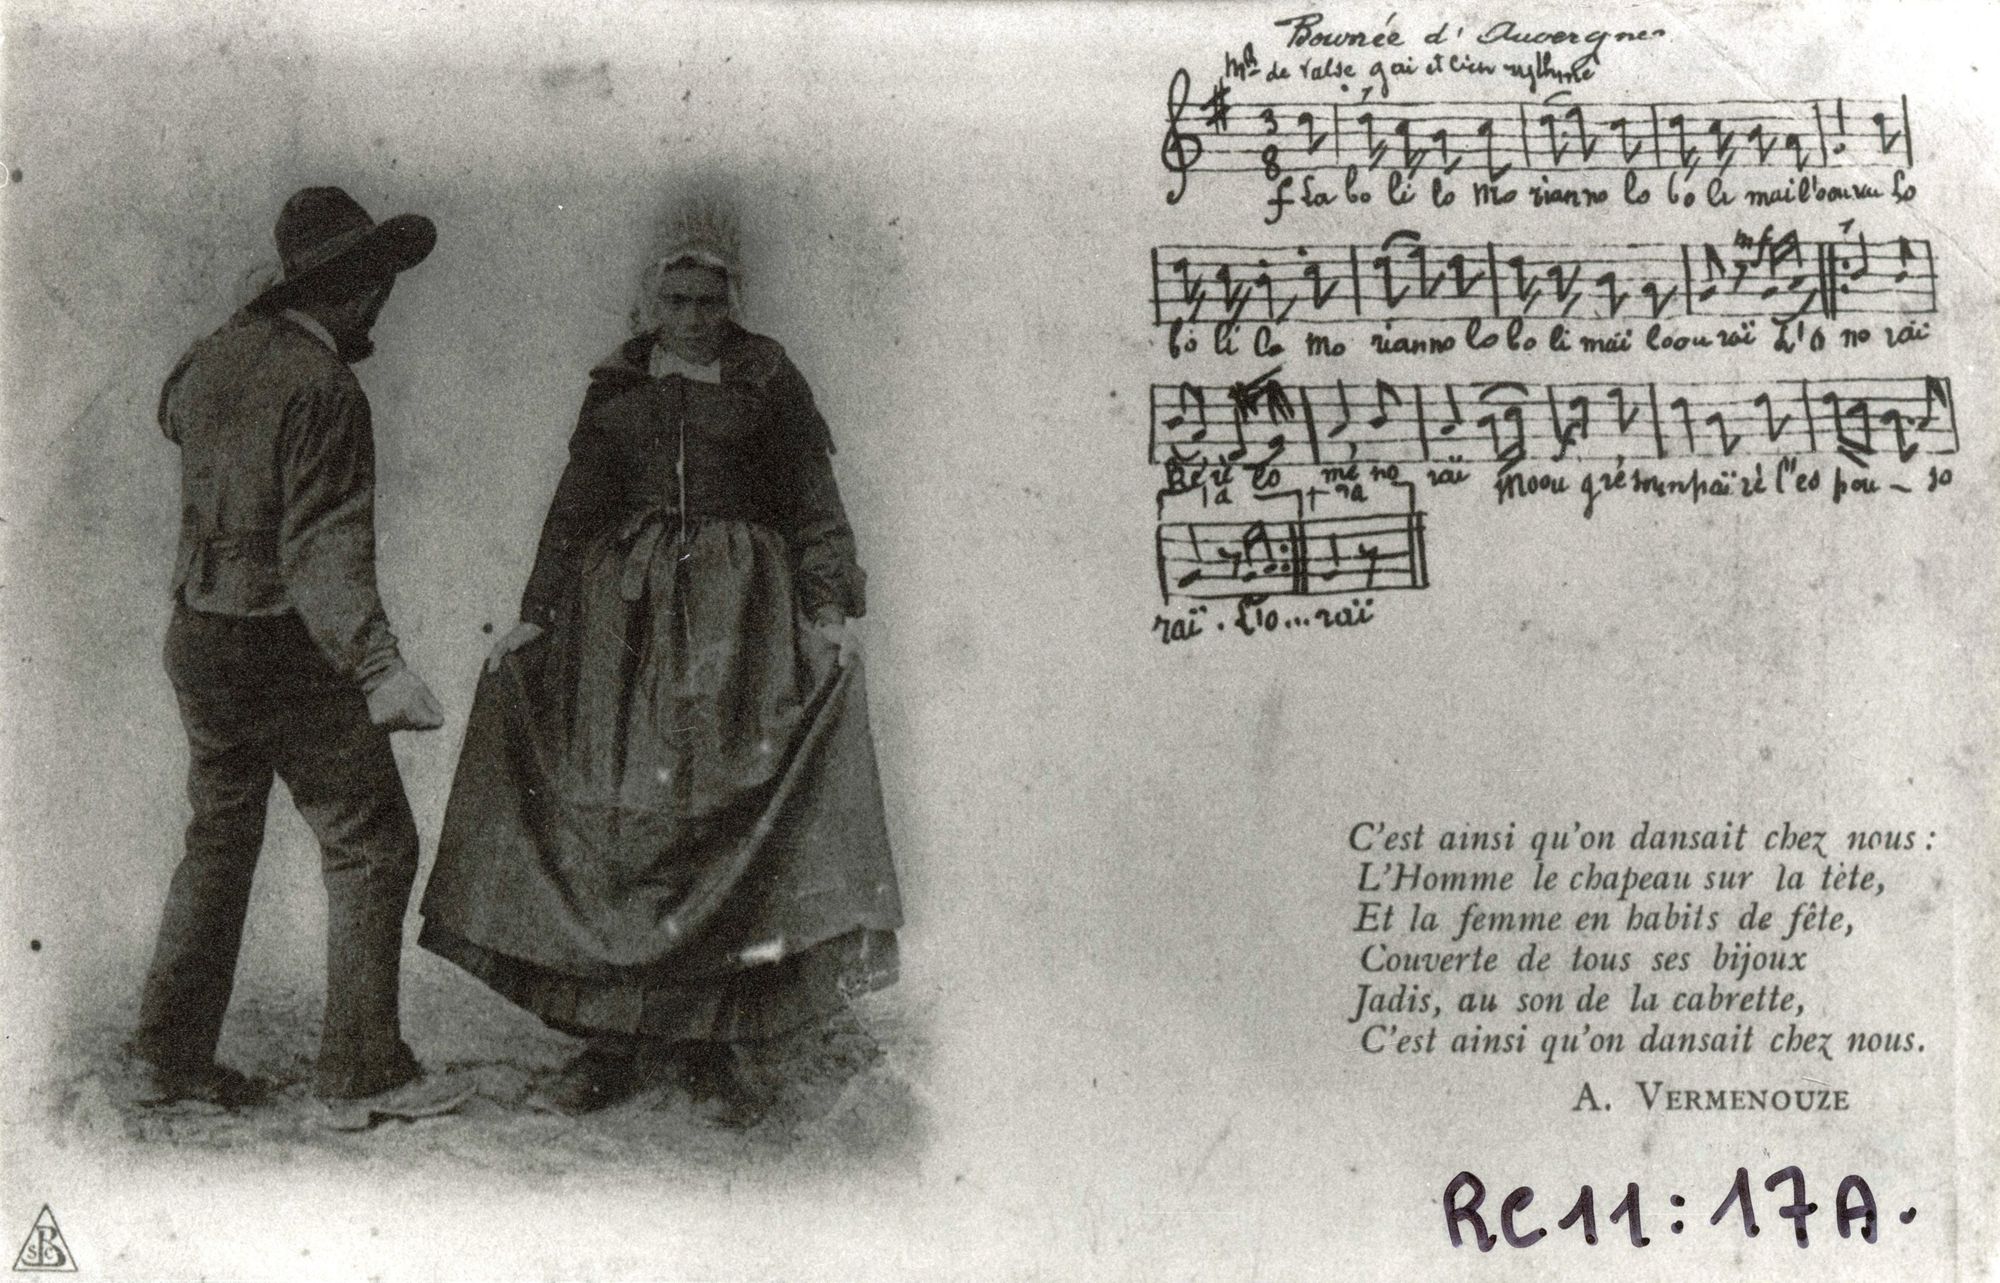 Bourrée d'Auvergne
Mt de valse gai et bien rythmé
3
8
f Lo bo li lo Mo rianno lo bo li mai l'oourai Lo
bo li lo mo rianno lo bo li maï loou raï L'o no raï
mf
mé no raï
1a
raï . L'o... raï
C'est ainsi qu'on dansait chez nous :
L'Homme le chapeau sur la tète,
Et la femme en habits de fête,
Couverte de tous ses bijoux
Jadis, au son de la cabrette,
C'est ainsi qu'on dansait chez nous.
A. VERMENOUZE
RC11:17A.